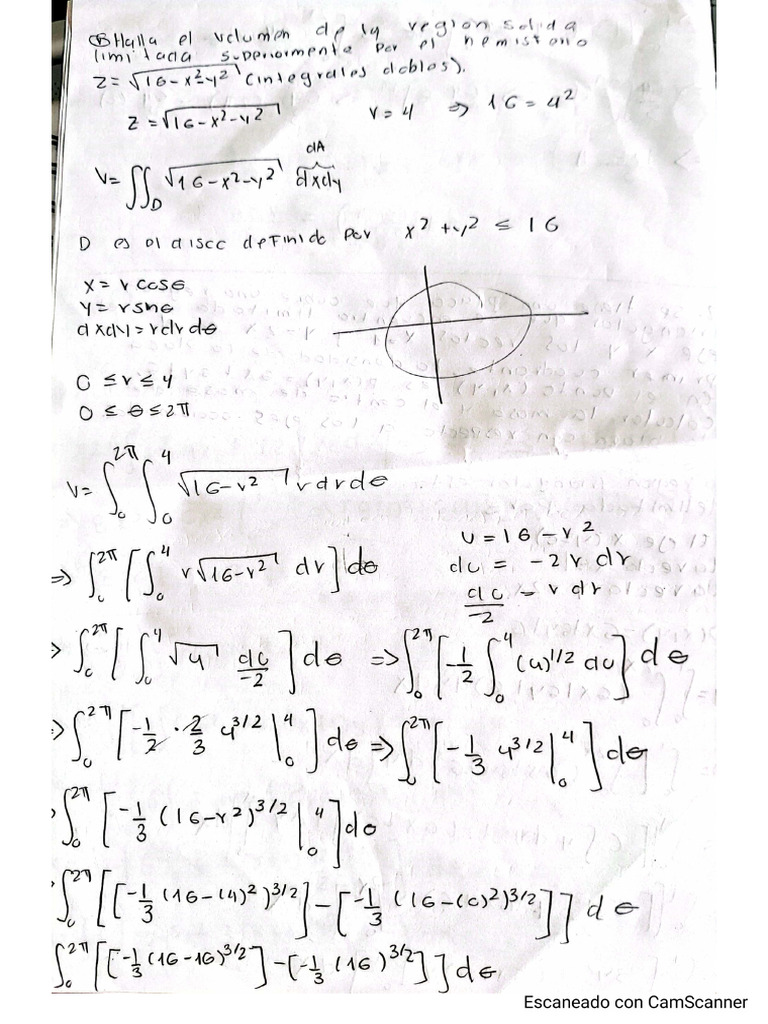 ⑧ Halla el volumen de la region solida
limitada superiormente por el hemisferio
z = √(16-x²-y²) (integrales dobles).
z = √(16-x²-y²) r = 4 ⇒ 16 = 4²
dA
V = ∬_D √(16-x²-y²) dxdy
D es el disco definido por x² + y² ≤ 16
x = r cosθ
y = r senθ
dxdy = rdrdθ
0 ≤ r ≤ 4
0 ≤ θ ≤ 2π
V = ∫₀^2π ∫₀^4 √(16-r²) rdrdθ
⇒ ∫₀^2π [∫₀^4 r√(16-r²) dr] dθ
u = 16 - r²
du = -2 r dr
du/-2 = r dr
⇒ ∫₀^2π [∫₀^4 √u du/-2] dθ ⇒ ∫₀^2π [-1/2 ∫₀^4 (u)^1/2 du] dθ
⇒ ∫₀^2π [-1/2 · 2/3 u^3/2 |₀^4] dθ ⇒ ∫₀^2π [-1/3 u^3/2 |₀^4] dθ
∫₀^2π [-1/3 (16-r²)^3/2 |₀^4] dθ
∫₀^2π [[-1/3 (16-(4)²)^3/2] - [-1/3 (16-(0)²)^3/2]] dθ
∫₀^2π [[-1/3 (16-16)^3/2] - [-1/3 (16)^3/2]] dθ
Escaneado con CamScanner